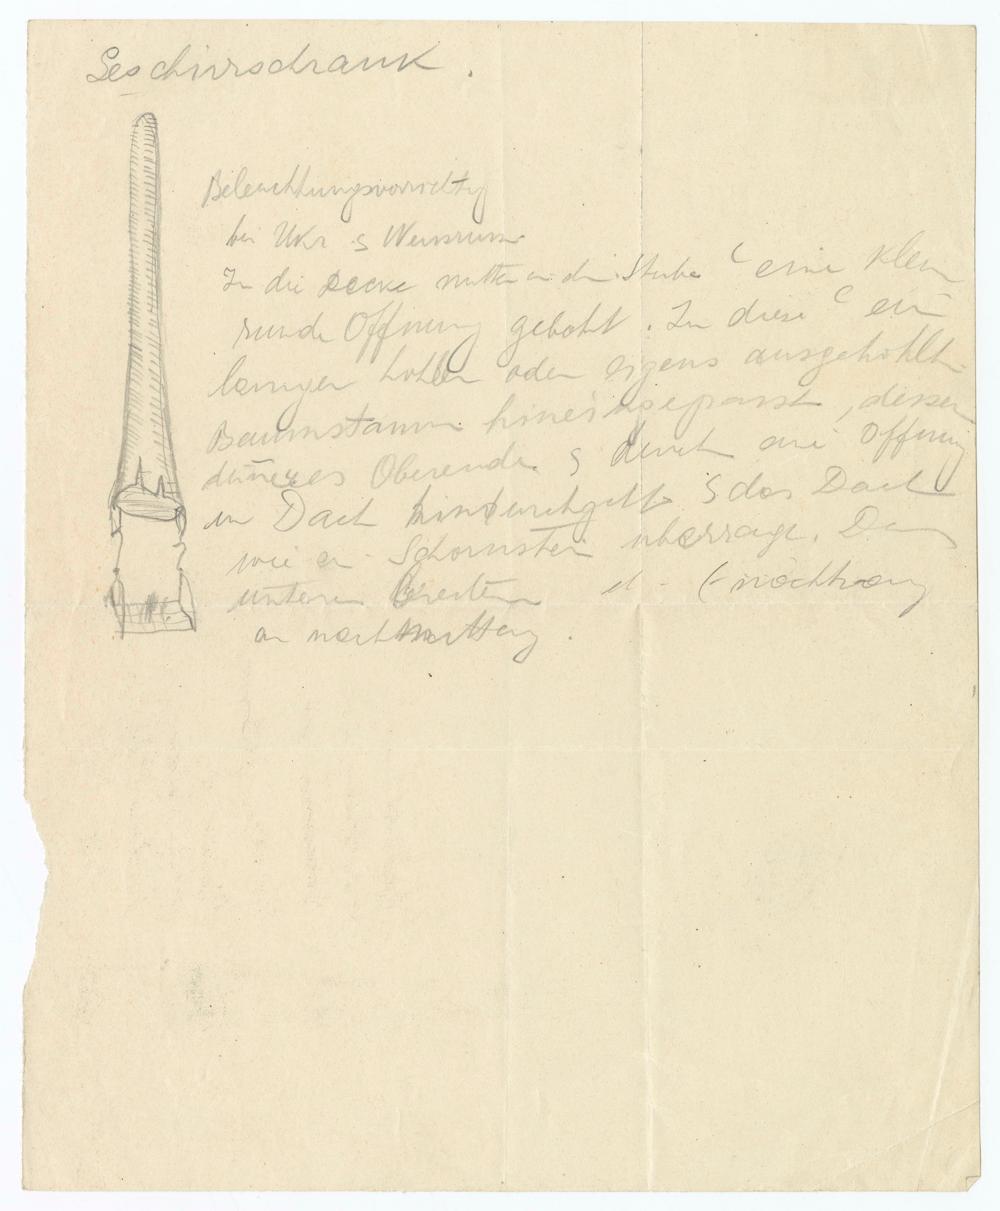 Geschirrschrank.
Beleuchtungsvorrichtg
bei Ukr
In die Decke mitten in die Stube eine klein
runde Öffnung gebohrt. In diese ein
langer hohler oder eigens ausgehöhlt
Baumstamm hineingepasst, dessen
dünneres Oberende durch eine Öffnung
im Dach hindurchgeht das Dach
wie ein Schornstein überragt. Dem
unteren breiten